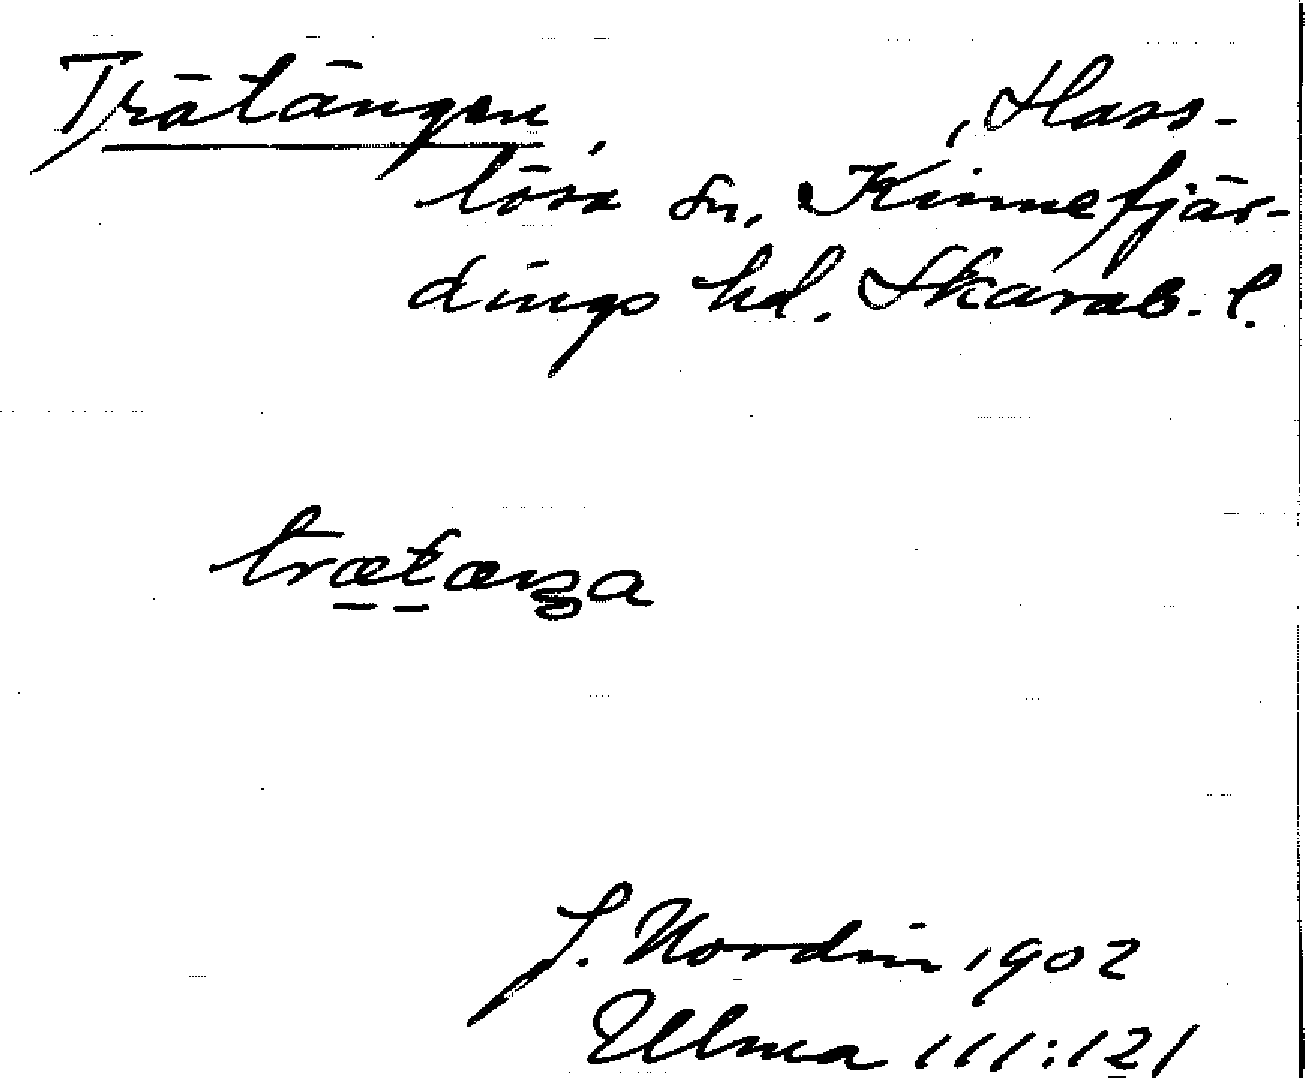 Trätängen, , Hass-
lösa sn, Kinnefjär-
dings hd. Skarab. l.
trætæŋa
J. Nordin 1902
Ulma 111:121